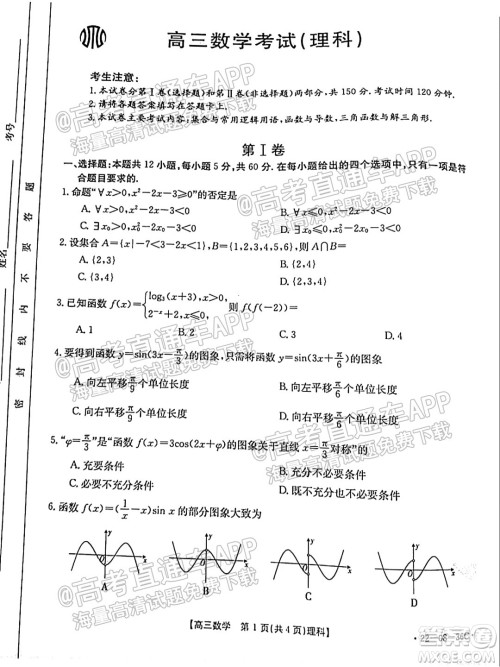 高三数学考试(理科)
考生注意:
1.本试卷分第Ⅰ卷(选择题)和第Ⅱ卷(非选择题)两部分,共150分。考试时间120分钟。
2.请将各题答案填写在答题卡上。
3.本试卷主要考试内容:集合与常用逻辑用语,函数与导数,三角函数与解三角形。
第Ⅰ卷
一、选择题:本题共12小题,每小题5分,共60分.在每小题给出的四个选项中,只有一项是符合题目要求的.
1.命题“∀x>0,x²-2x-3≥0”的否定是
A.∀x>0,x²-2x-3<0 B.∀x≤0,x²-2x-3<0
C.∃x₀>0,x₀²-2x₀-3<0 D.∃x₀≤0,x₀²-2x₀-3<0
2.设集合A={x|-7<3-2x<-1},B={1,2,3,4,5,6},则A∩B=
A.{2,3}
C.{3,4} D.{2,3,4}
3.已知函数f(x)={log₃(x+3),x>0, 2⁻ˣ+2,x≤0,则f(f(-2))=
A.1 B.2 C.3 D.4
4.要得到函数y=sin(3x-π/3)的图象,只需将函数y=sin(3x+π/6)的图象
A.向左平移π/9个单位长度 B.向左平移π/6个单位长度
C.向右平移个单位长度 D.向右平移π/6个单位长度
5.“φ=π/3”是“函数f(x)=3cos(2x+φ)的图象关于直线x=π/3对称”的
A.充要条件 B.充分不必要条件
C.必要不充分条件 D.既不充分也不必要条件
6.函数f(x)=(1/x-x)sin x的部分图象大致为
y
O
x
A
y
O
x
B
y
O
x
C
y
O
x
D
【高三数学 第1页(共4页)理科】
考号
姓名
密封线内不要答题
@高考直通车APP
海量高清试题免费下载
@高考直通车APP
海量高清试题免费下载
@高考直通车APP
海量高清试题免费下载
@高考直通车APP
海量高清试题免费下载